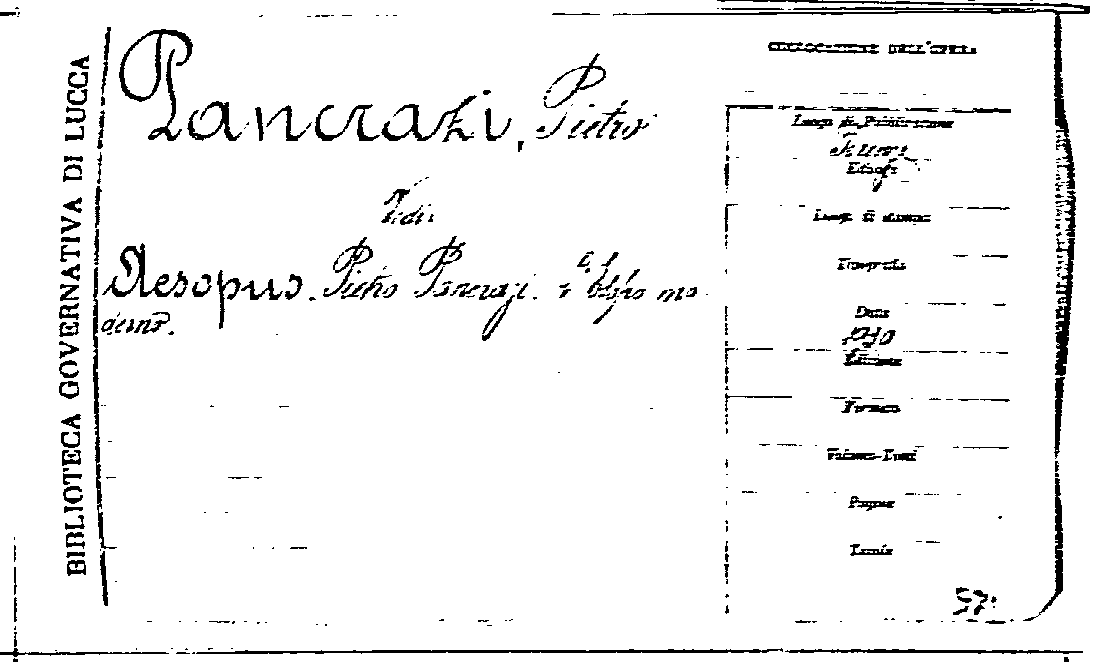 BIBLIOTECA GOVERNATIVA DI LUCCA
Pancrazi, Pietro
Vedi
Aesopus. Pietro Pancrazi. L'Esopo mo
derno.
COLLOCAZIONE DELL'OPERA
Luogo di Pubblicazione
Firenze
Luogo di stampa
Tipografia
Data
1930
Edizione
Formato
Volumi-Tomi
Pagine
Tavole